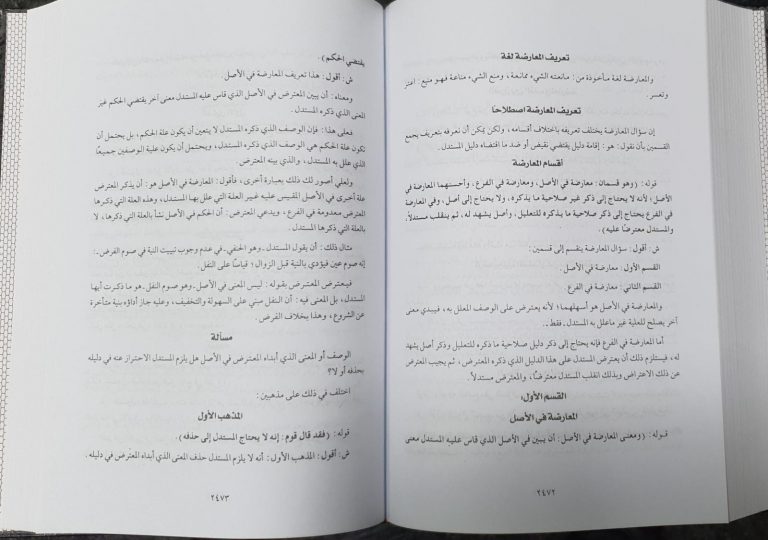 تعريف المعارضة لغة
والمعارضة لغة مأخوذة من: مانعته الشيء ممانعة، ومنع الشيء مناعة فهو منيع: اعتز
وتعسر.
تعريف المعارضة اصطلاحا
إن سؤال المعارضة يختلف تعريفه باختلاف أقسامه، ولكن يمكن أن نعرفه بتعريف يجمع
القسمين بأن نقول: هو: إقامة دليل يقتضي نقيض أو ضد ما اقتضاه دليل المستدل.
أقسام المعارضة
قوله: (وهو قسمان: معارضة في الأصل، ومعارضة في الفرع، وأحسنهما المعارضة في
الأصل؛ لأنه لا يحتاج إلى ذكر غير صلاحية ما يذكره، ولا يحتاج إلى أصل، وفي المعارضة
في الفرع يحتاج إلى ذكر صلاحية ما يذكره للتعليل، وأصل يشهد له، ثم ينقلب مستدلاً
والمستدل معترضا عليه).
ش: أقول: سؤال المعارضة ينقسم إلى قسمين:
القسم الأول: معارضة في الأصل.
القسم الثاني: معارضة في الفرع
والمعارضة في الأصل هو أسهلهما؛ لأنه يعترض على الوصف المعلل به، فيبدي معنى
آخر يصلح للعلية غير ما علل به المستدل ـ فقط ـ.
أما المعارضة في الفرع فإنه يحتاج إلى ذكر دليل صلاحية ما ذكره للتعليل وذكر أصل يشهد
له، فيستلزم ذلك أن يعترض المستدل على هذا الدليل الذي ذكره المعترض، ثم يجيب المعترض
عن ذلك الاعتراض وبذلك انقلب المستدل معترضًا، والمعترض مستدلاً.
القسم الأول:
المعارضة في الأصل
قوله: (ومعنى المعارضة في الأصل: أن يبين في الأصل الذي قاس عليه المستدل معنى
٢٤٧٢
يقتضي الحكم).
ش: أقول: هذا تعريف المعارضة في الأصل.
ومعناه: أن يبين المعترض في الأصل الذي قاس عليه المستدل معنى آخر يقتضي الحكم غير
المعنى الذي ذكره المستدل.
فعلى هذا: فإن الوصف الذي ذكره المستدل لا يتعين أن يكون علة الحكم، بل يحتمل أن
تكون علة الحكم هي الوصف الذي ذكره المستدل، ويحتمل أن يكون علية الوصفين جميعًا
الذي علل به المستدل، والذي بينه المعترض.
ولعلي أصور لك ذلك بعبارة أخرى، فأقول: المعارضة في الأصل هو: أن يذكر المعترض
علة أخرى في الأصل المقيس عليه غير العلة التي علل بها المستدل، وهذه العلة التي ذكرها
المعترض معدومة في الفرع، ويدعي المعترض: أن الحكم في الأصل نشأ بالعلة التي ذكرها، لا
بالعلة التي ذكرها المستدل.
مثال ذلك: أن يقول المستدل ـ وهو الحنفي ـ في عدم وجوب تبييت النية في صوم الفرض ـ:
إنه صوم عين فيؤدي بالنية قبل الزوال؛ قياسًا على النفل.
فيعترض المعترض بقوله: ليس المعنى في الأصل ـ وهو صوم النفل ـ هو ما ذكرت أيها
المستدل، بل المعنى فيه: أن النفل مبني على السهولة والتخفيف، وعليه جاز أداؤه بنية متأخرة
عن الشروع، وهذا بخلاف الفرض.
مسألة
الوصف أو المعنى الذي أبداه المعترض في الأصل هل يلزم المستدل الاحتراز عنه في دليله
بحذفه أو لا؟
اختلف في ذلك على مذهبين:
المذهب الأول
قوله: (فقد قال قوم: إنه لا يحتاج المستدل إلى حذفه).
ش: أقول: المذهب الأول: أنه لا يلزم المستدل حذف المعنى الذي أبداه المعترض في دليله،
٢٤٧٣